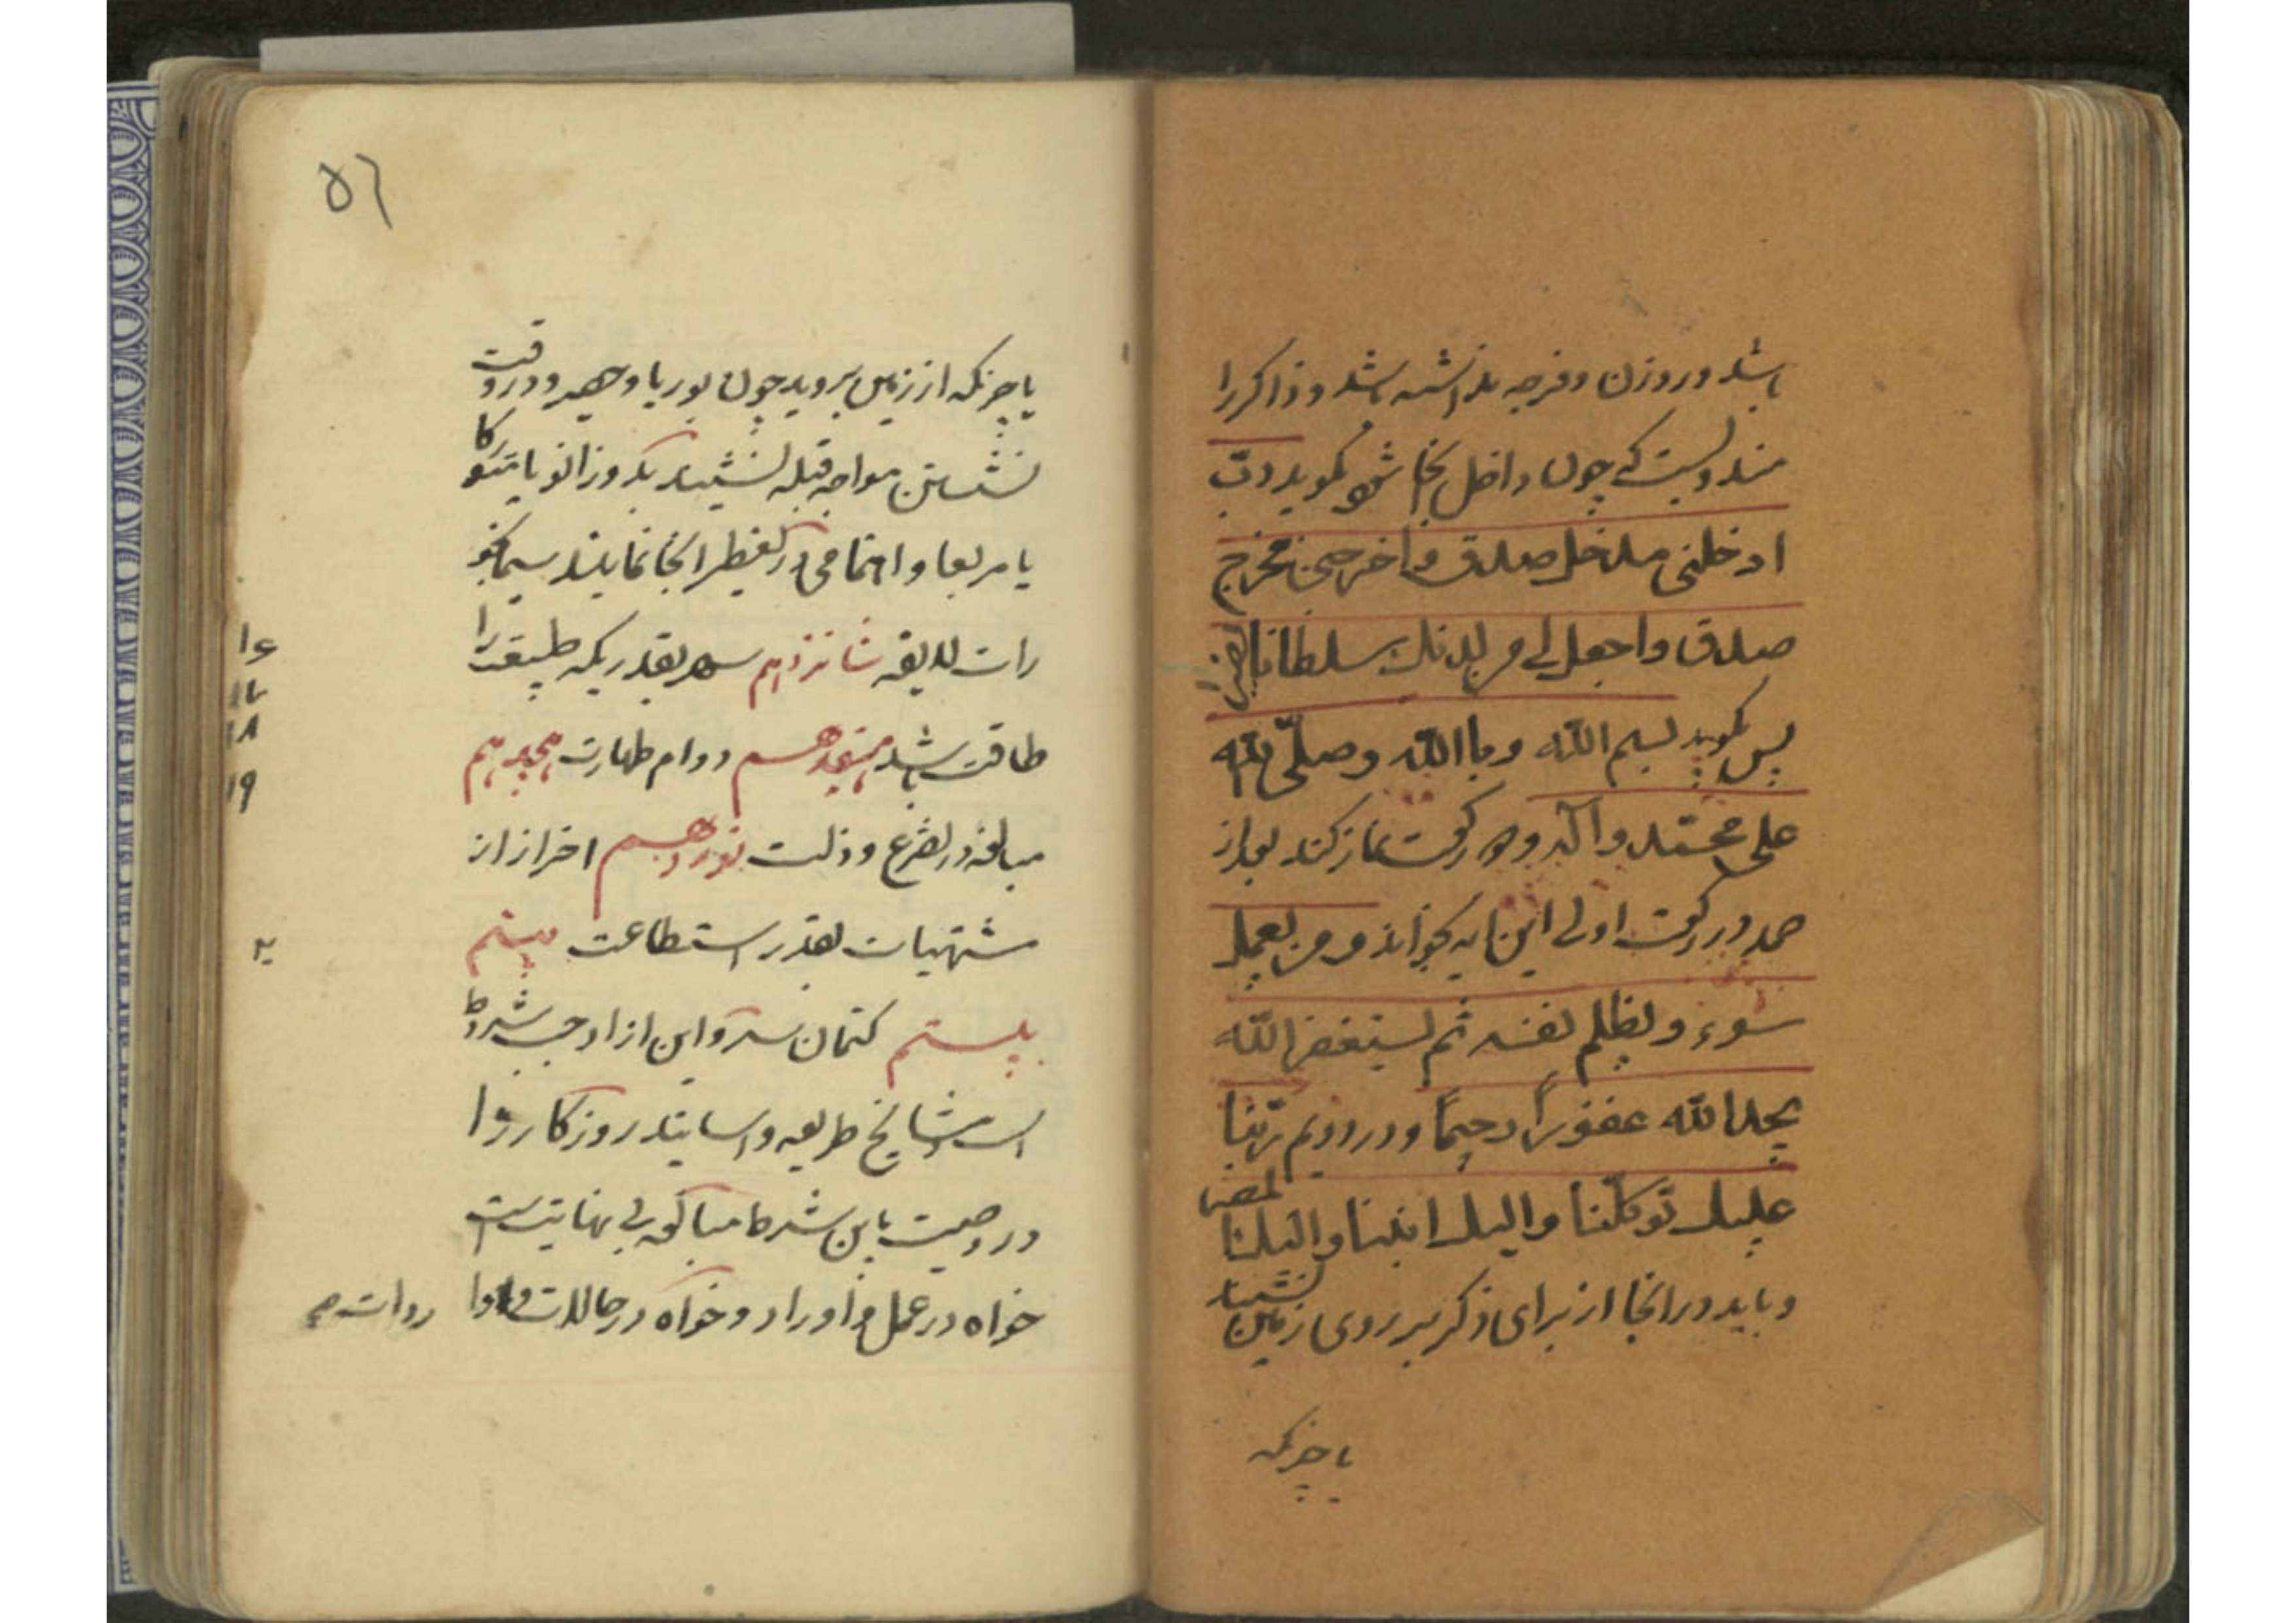 باشد و روزن و فرجه نداشته باشد و ذاکر را
مندوبست که چون داخل آنجا شود بگوید رب
ادخلنی مدخل صدق واخرجنی مخرج
صدق واجعل لی من لدنک سلطانا نصیرا
پس بگوید بسم الله وباالله وصلّی الله
علی محمّد وآله ودو رکعت نماز کند بعد از
حمد در رکعت اولی این آیه بخواند ومن یعمل
سوء ویظلم نفسه ثم یستغفر الله
یجد الله غفوراً رحیماً ودر دویم ربّنا
علیک توکّلنا والیک انبنا والیک المصیر
وباید در آنجا از برای ذکر بر روی زمین نشیند
یا چیزیکه
۵٦
یا چیزیکه از زمین بروید چون بوریا وحصیر ودر وقت
نشستن مواجه قبله نشیند بدو زانو یا متکا
یا مربعا و در آنجا نمایند سیما بخو
رات لایقه شانزدهم سهر بقدریکه طبیعت را
طاقت باشد هفدهم دوام طهارت هجدهم
مبالغه در تضرع وذلت نوزدهم احتراز از
مشتهیات بقدر استطاعت بیستم
بیستم کتمان سر واین از اوجب شروط
است مشایخ طریقه واساتید روزکار را
در وصیت باین شرط مبالغه بی نهایتست
خواه در عمل واوراد وخواه در حالات و
۱۶
۱۷
۱۸
۱۹
۲۰